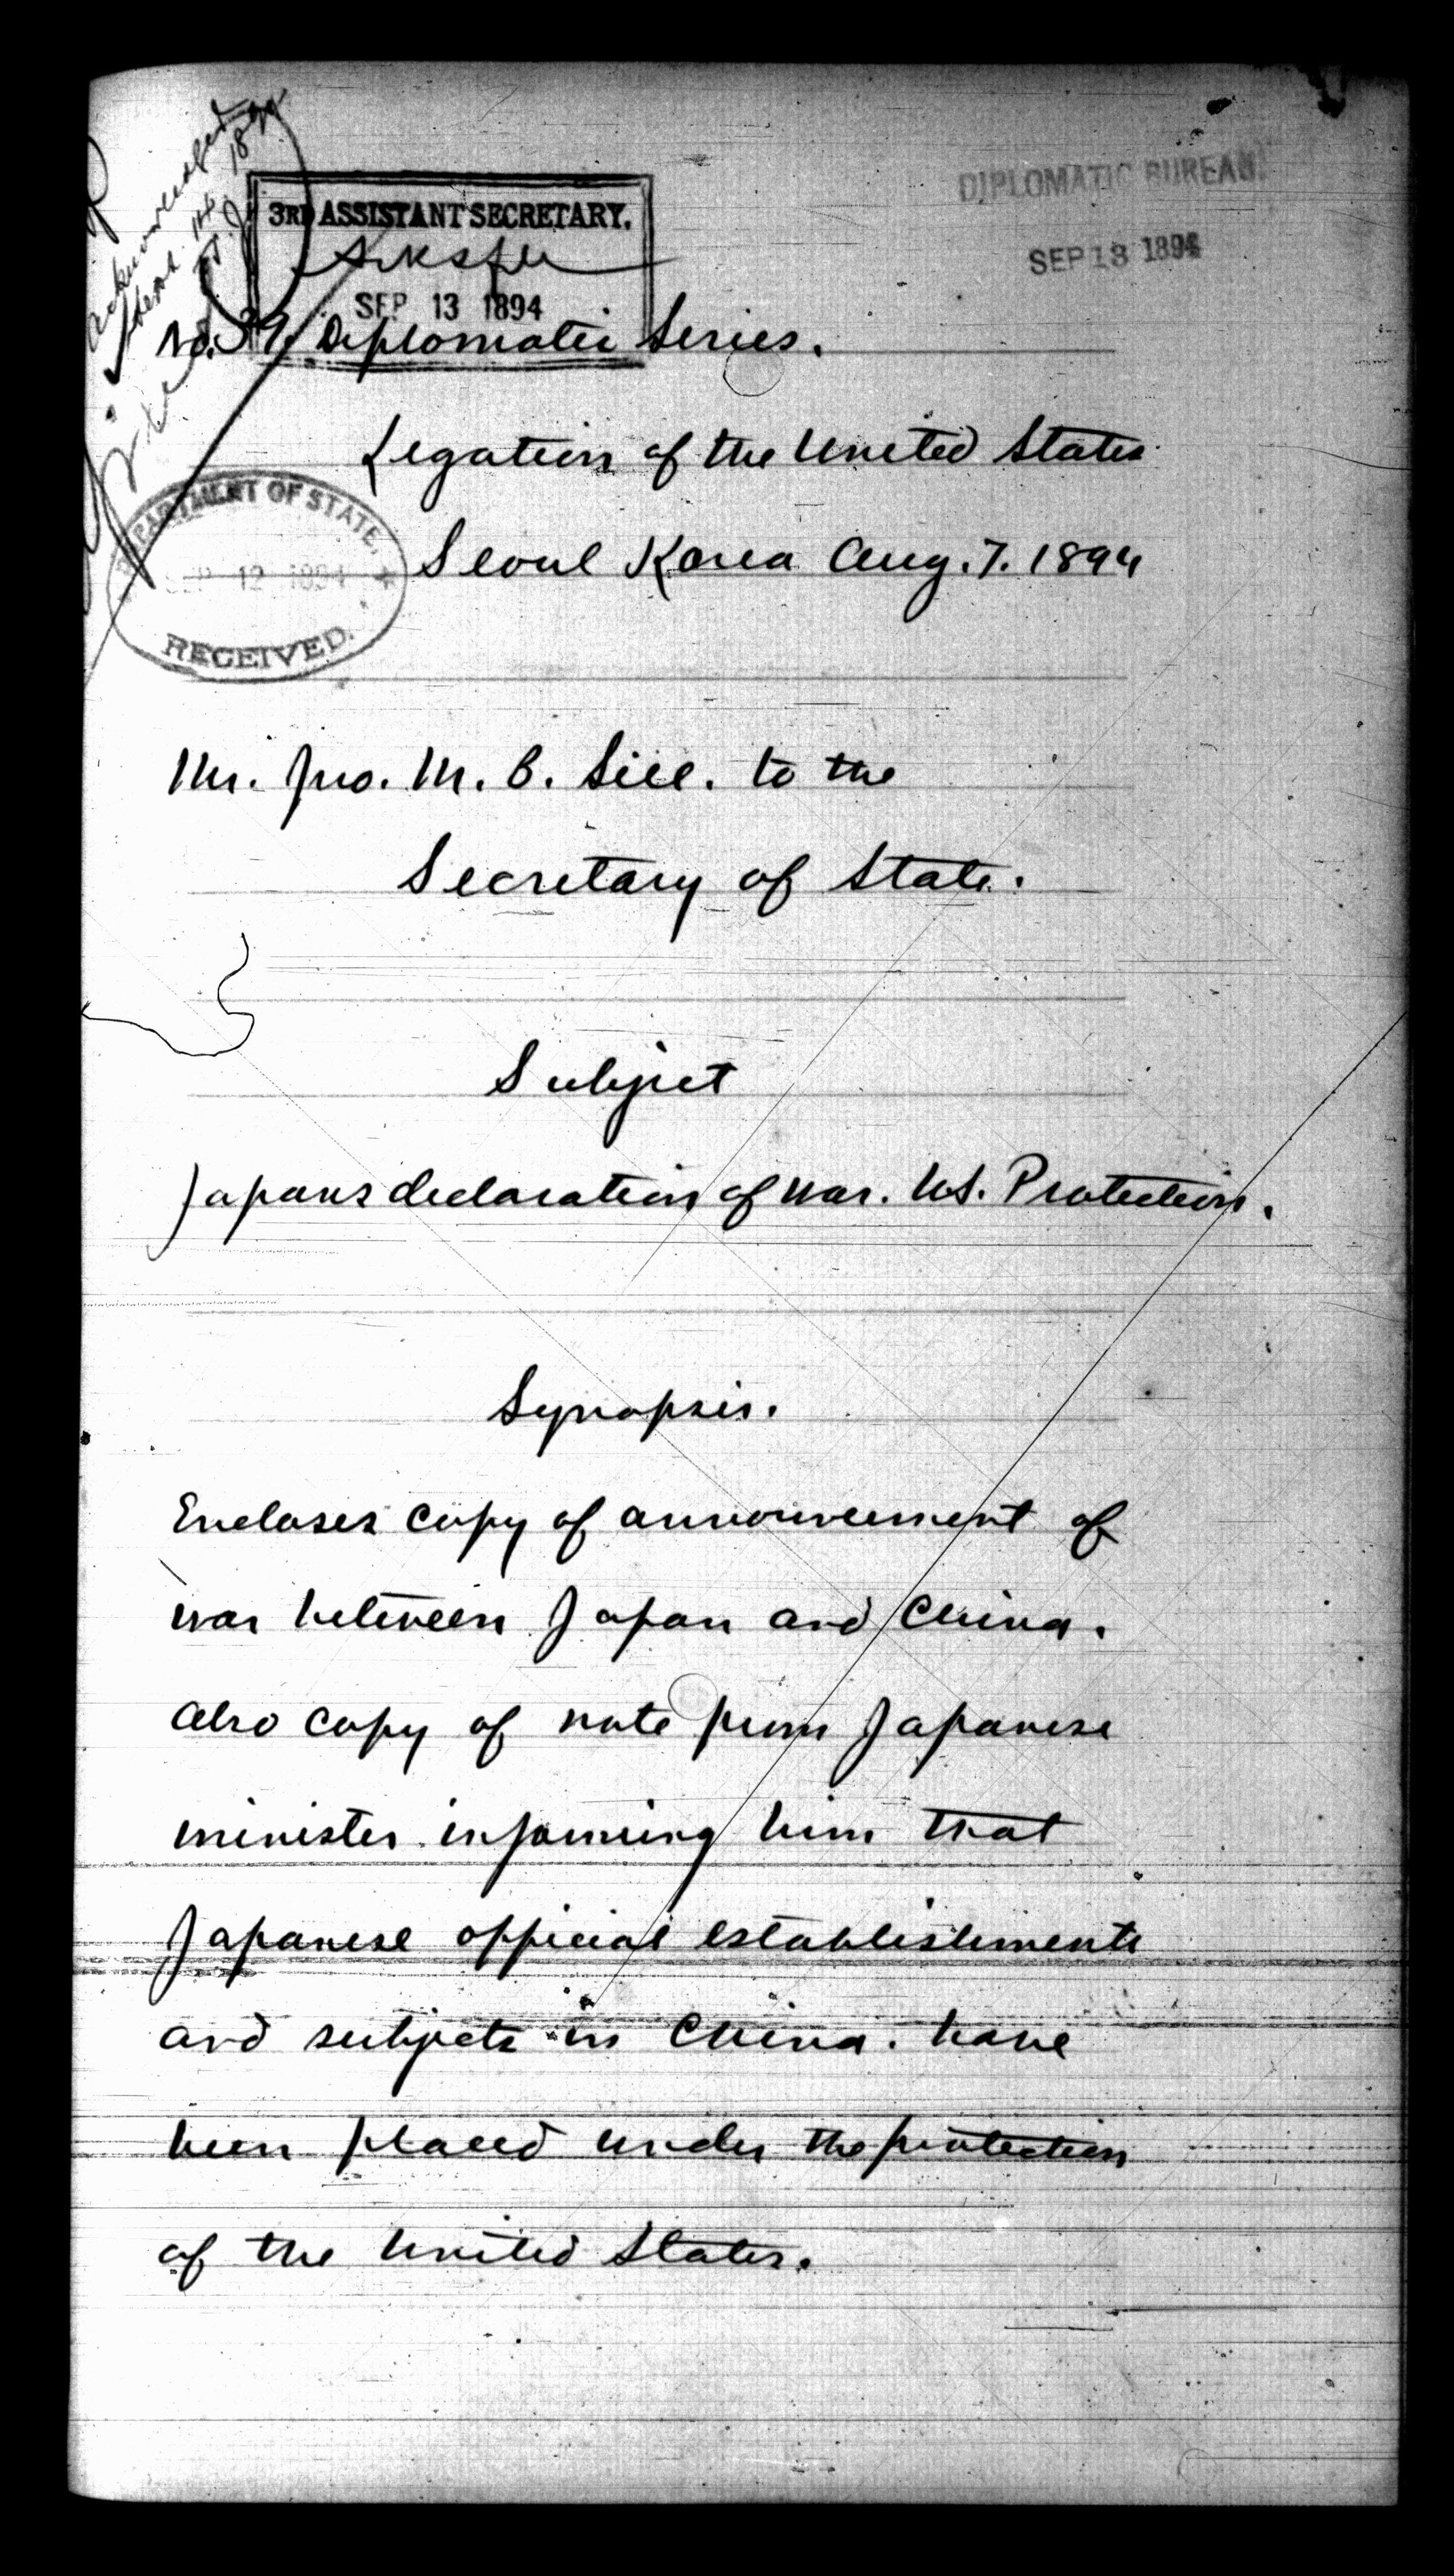 acknowledged
Sept. 14 1894
3RD ASSISTANT SECRETARY.
SEP 13 1894
DIPLOMATIC BUREAU.
SEP 13 1894
No. 39. Diplomatic Series.
Legation of the United States
Seoul Korea Aug. 7. 1894
DEPARTMENT OF STATE.
SEP 12 1894
RECEIVED.
Mr. Jno. M. B. Sill. to the
Secretary of State.
Subject
Japans declaration of war. U.S. Protection.
Synopsis.
Encloses copy of announcement of
war between Japan and China.
Also copy of note from Japanese
minister informing him that
Japanese official establishments
and subjects in China. have
been placed under the protection
of the United States.